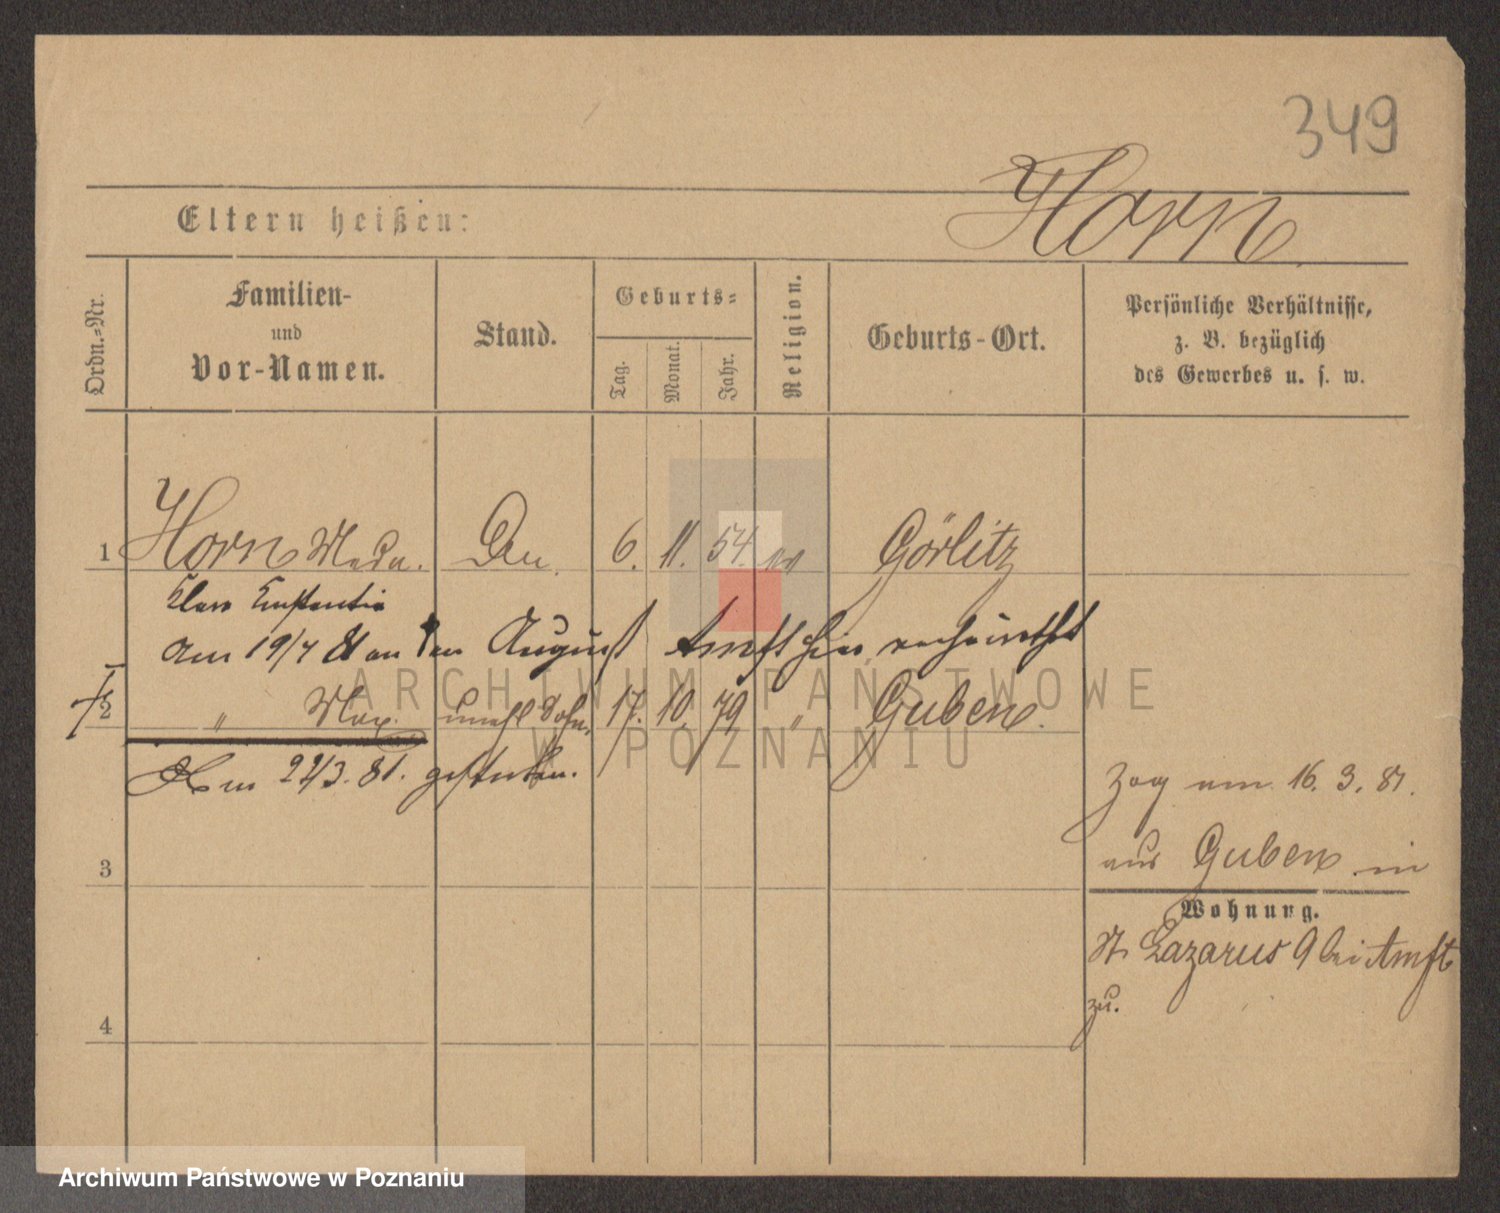 349
Horn
Eltern heißen:
Ordn.-Nr.
Familien-
und
Vor-Namen.
Stand.
Geburts-
Tag.
Monat.
Jahr.
Religion.
Geburts-Ort.
Persönliche Verhältnisse,
z. B. bezüglich
des Gewerbes u. s. w.
1 Horn 6. 11. 54. Görlitz
Am 19/7 81 an den August Amft hier verheirathet
2 " Max. unehl Sohn 17. 10. 79 " Guben.
Am 22/3. 81. gestorben.
Zog am 16. 3. 81.
aus Guben in
3
Wohnung.
St. Lazarus 9 bei Amft
zu.
4
ARCHIWUM PAŃSTWOWE
W POZNANIU
Archiwum Państwowe w Poznaniu